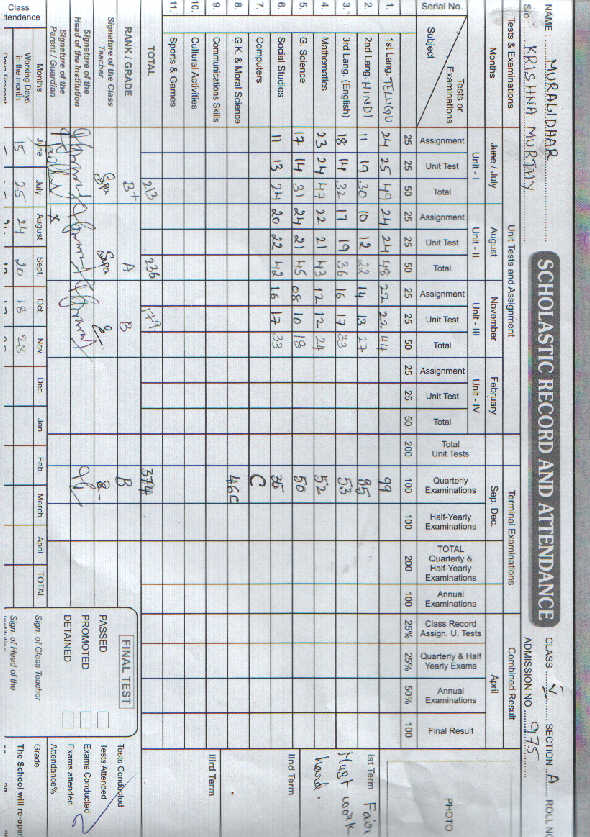 SCHOLASTIC RECORD AND ATTENDANCE
NAME MURALIDHAR CLASS V SECTION A ROLL N
S/o KRISHNA MURTHY ADMISSION NO 975
Tests & Examinations Unit Tests and Assignment Terminal Examinations Combined Result
Months June / July August November February Sep. Dec. April
Unit - I Unit - II Unit - III Unit - IV
Serial No. Subject Tests or Examinations Assignment Unit Test Total Assignment Unit Test Total Assignment Unit Test Total Assignment Unit Test Total Total Unit Tests Quarterly Examinations Half-Yearly Examinations TOTAL Quarterly & Half Yearly Examinations Annual Examinations Class Record Assign. U. Tests Quarterly & Half Yearly Exams Annual Examinations Final Result PHOTO
25 25 50 25 25 50 25 25 50 25 25 50 200 100 100 200 100 25% 25% 50% 100
1. 1st Lang. TELUGU 24 25 49 24 24 48 22 22 44 99
2. 2nd Lang. HINDI 11 19 30 10 12 22 14 13 27 85
3. 3rd Lang. (English) 18 14 32 17 19 36 16 17 33 53
4. Mathematics 23 24 47 22 21 43 12 12 24 52
5. G. Science 17 14 31 24 21 45 08 10 18 50
6. Social Studies 11 13 24 20 22 42 16 17 33 35
7. Computers C
8. G.K. & Moral Science 46C
9. Communications Skills
10. Cultural Activities
11. Sports & Games
Ist Term Fair
Must work
hard.
IInd Term
IIIrd Term
TOTAL 213 236 179 374
RANK / GRADE B+ A B B
Signature of the Class Teacher
Signature of the Head of the Institution
Signature of the Parent / Guardian
FINAL TEST
PASSED
PROMOTED
DETAINED
Tests Conducted
Tests Attended
Exams Conducted
Exams attended
Attendance%
Class
Months June July August Sept Oct Nov Dec Jan Feb March April TOTAL Sign. of Class Teacher Grade
Working Days in the month 15 25 24 20 18 23 Sign. of Head of the The School will re-open